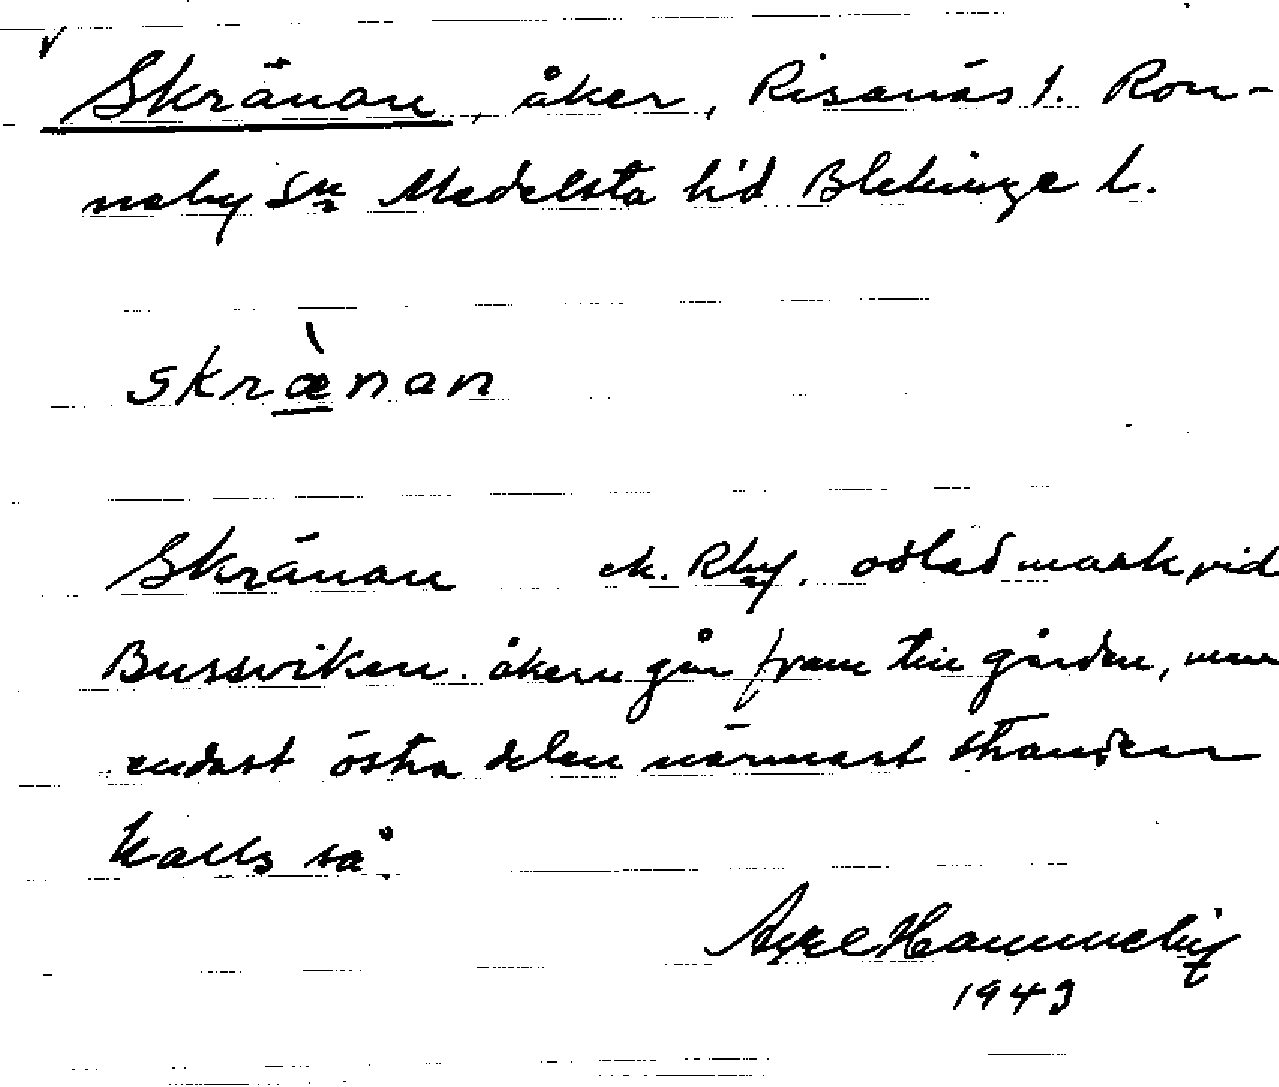 Skränan, åker, Risanäs 1. Ron-
neby Sn Medelsta h'd Blekinge l.
skrænan
Skränan ek. Rby. odlad mark vid
Bussviken. åkern går fram till gården, men
endast östra delen närmast stranden
kalls så.
Axel Hammelig
1943